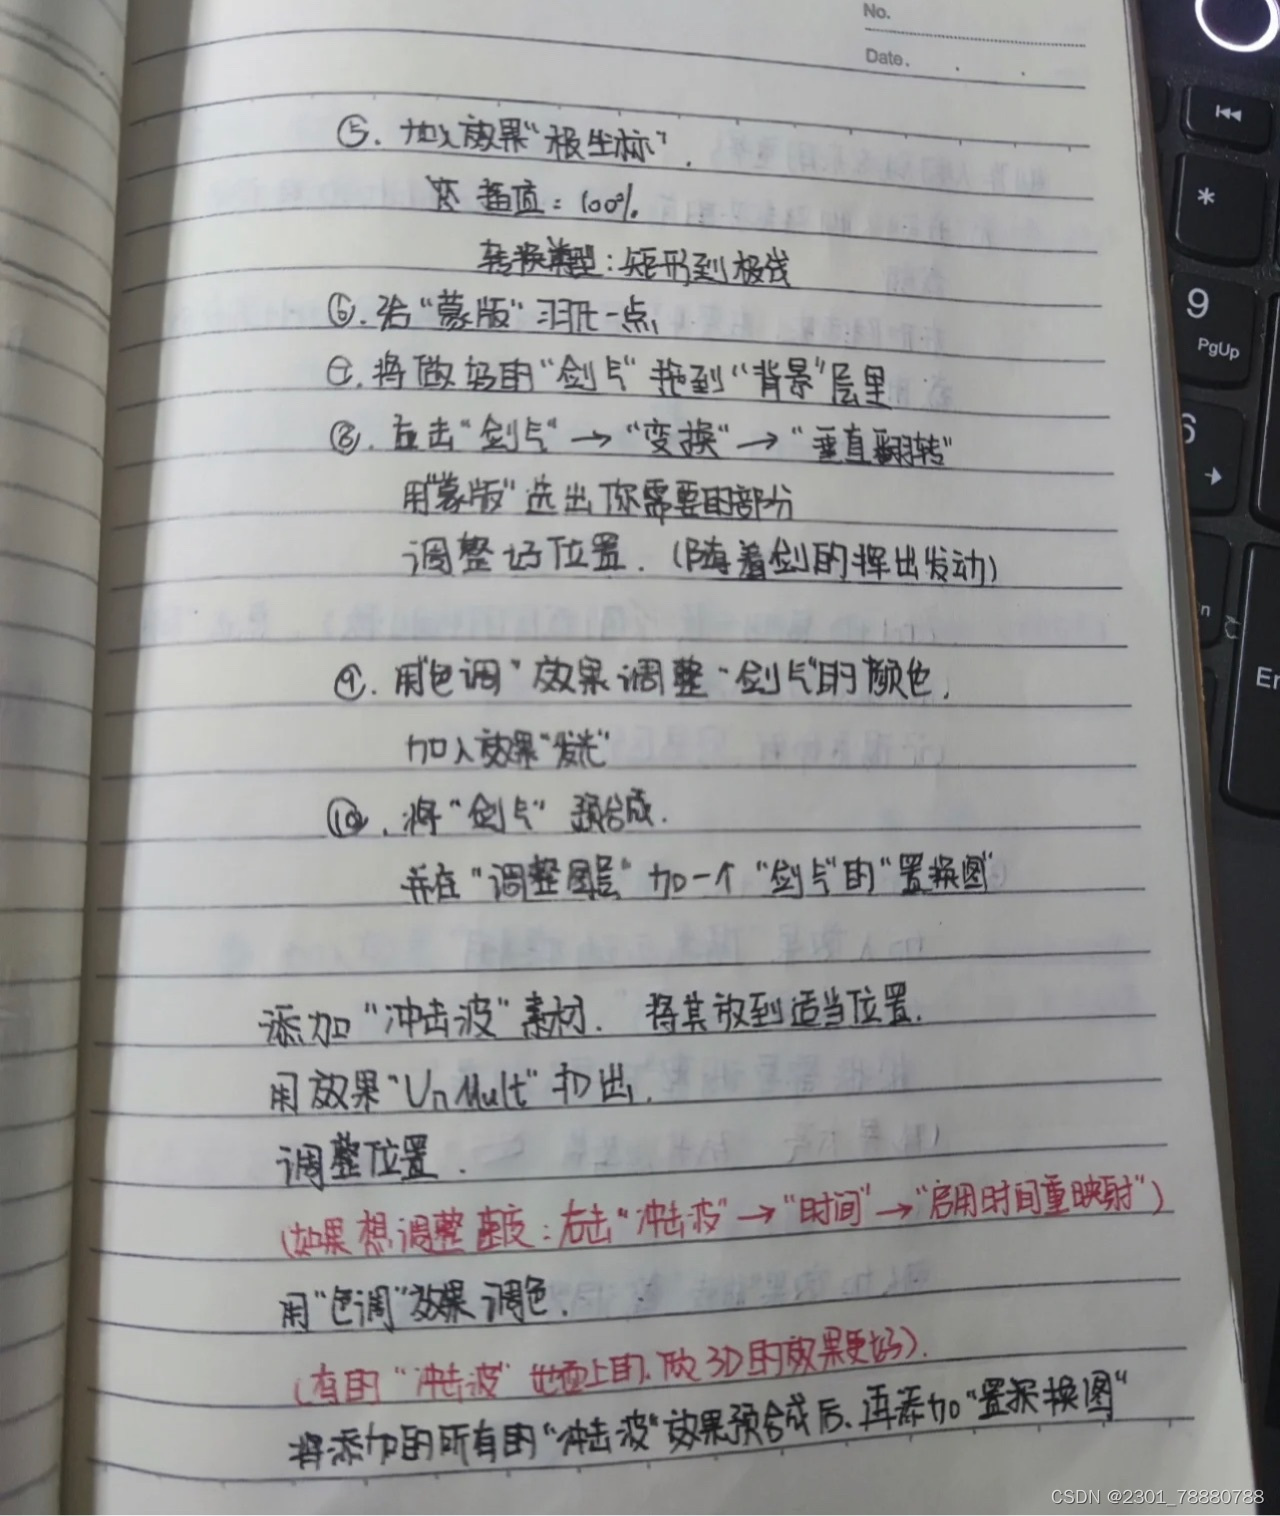 No.
Date.
⑤. 加入效果“极坐标”.
插值：100%
转换类型：矩形到极线
⑥. 给“蒙版”羽化一点
⑦. 将做好的“剑气”拖到“背景”层里
⑧. 右击“剑气”→“变换”→“垂直翻转”
用“蒙版”选出你需要的部分
调整好位置.（随着剑的挥出发动）
⑨. 用“色调”效果调整“剑气”的颜色.
加入效果“发光”
⑩. 将“剑气”预合成.
并在“调整图层”加一个“剑气”的“置换图”
添加“冲击波”素材. 将其放到适当位置.
用效果“UnMult”扣出.
调整位置.
（如果想调整速度：右击“冲击波”→“时间”→“启用时间重映射”）
用“色调”效果调色.
（有的“冲击波”地面上的.做3D的效果更好）.
将添加的所有的“冲击波”效果预合成后.再添加“置换图”
*
9
PgUp
6
En
CSDN @2301_78880788